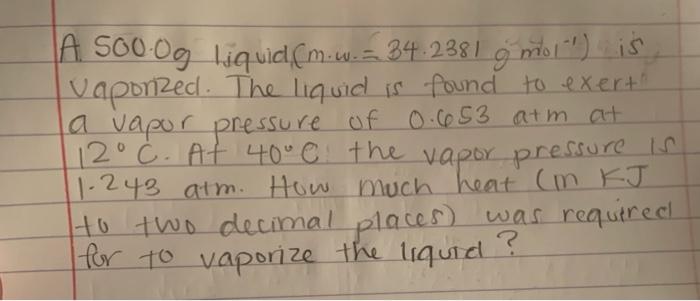 A 500.0g liquid (m.w. = 34.2381 g mol⁻¹) is
vaporized. The liquid is found to exert
a vapor pressure of 0.653 atm at
12°C. At 40°C the vapor pressure is
1.243 atm. How much heat (in KJ
to two decimal places) was required
for to vaporize the liquid?